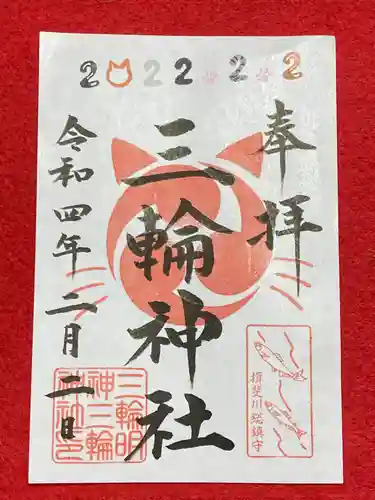 2 0 2 2 . 2 . 2
奉拝
三輪神社
令和四年二月二日
揖斐川総鎮守
三輪明
神三輪